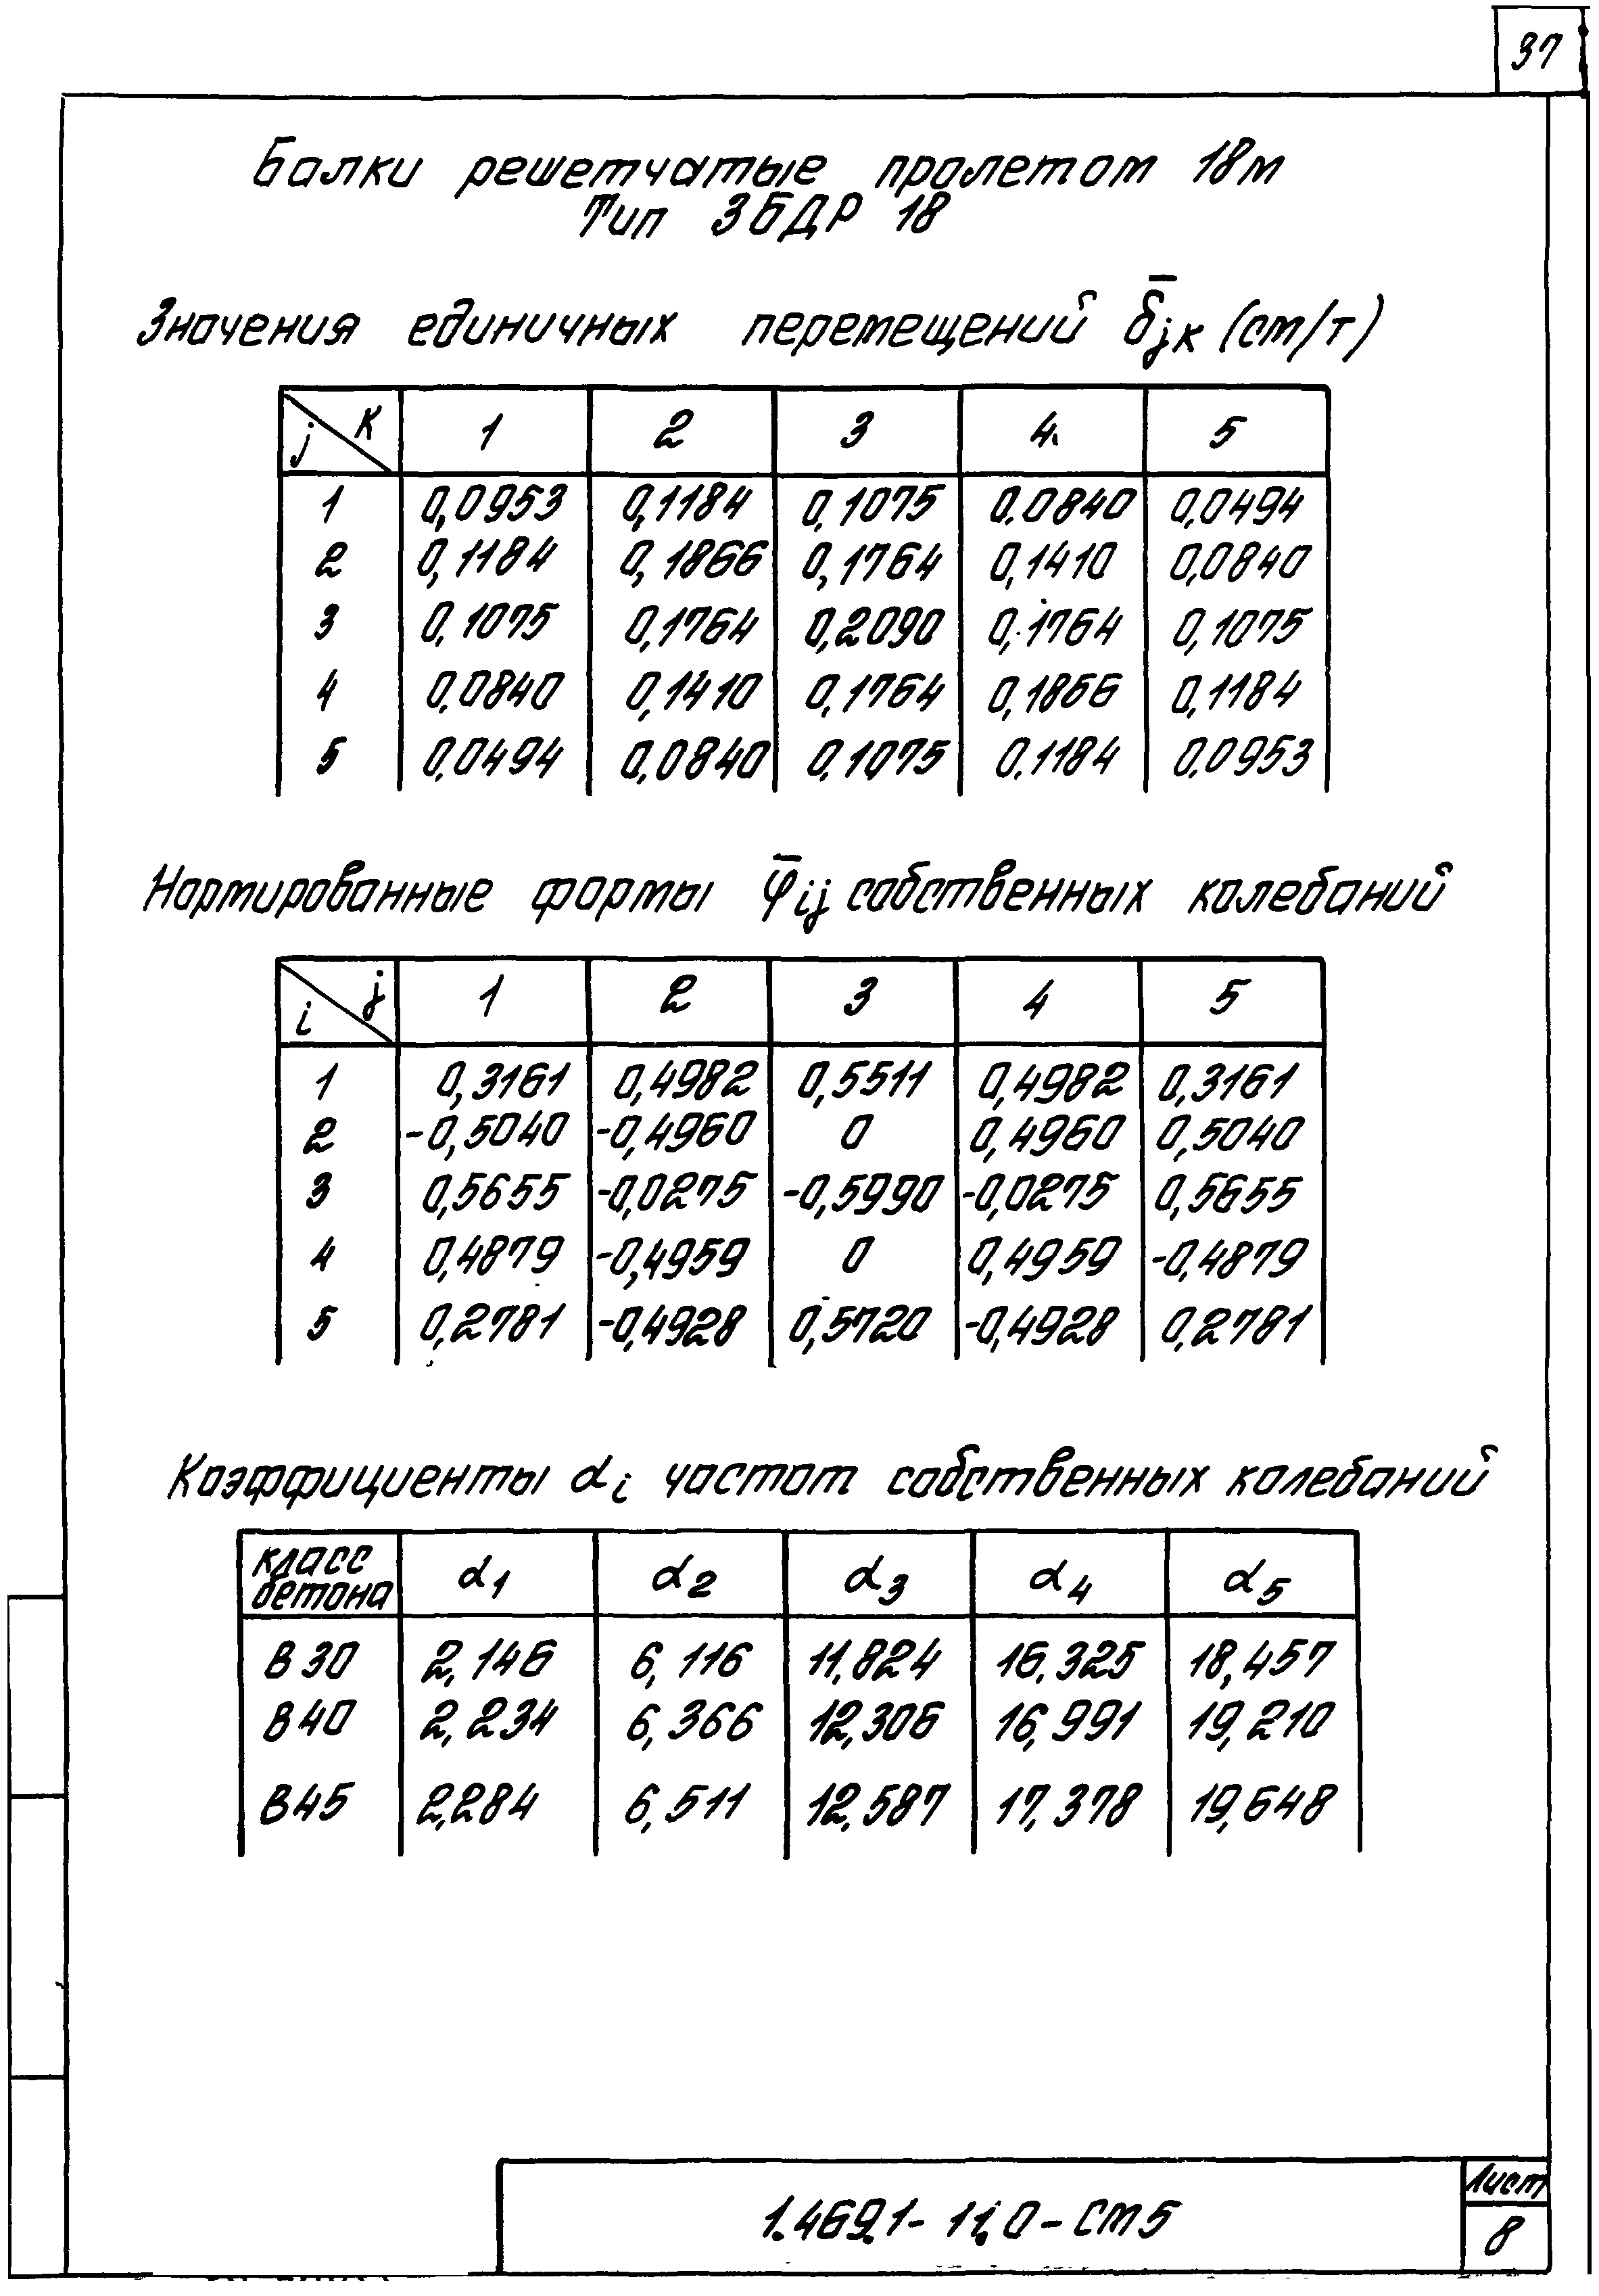 37
Балки решетчатые пролетом 18м
Тип 3БДР 18
Значения единичных перемещений δ̄jк (ст/т)
j К 1 2 3 4 5
1 0,0953 0,1184 0,1075 0.0840 0,0494
2 0,1184 0,1866 0,1764 0,1410 0,0840
3 0,1075 0,1764 0,2090 0,1764 0,1075
4 0,0840 0,1410 0,1764 0,1866 0,1184
5 0,0494 0,0840 0,1075 0.1184 0,0953
Нормированные формы φ̄ij собственных колебаний
i j 1 2 3 4 5
1 0,3161 0,4982 0,5511 0,4982 0,3161
2 -0,5040 -0,4960 0 0,4960 0,5040
3 0,5655 -0,0275 -0,5990 -0,0275 0,5655
4 0,4879 -0,4959 0 0,4959 -0,4879
5 0,2781 -0,4928 0,5720 -0,4928 0,2781
Коэффициенты αi частот собственных колебаний
класс бетона α1 α2 α3 α4 α5
В30 2,146 6,116 11,824 16,325 18,457
В40 2,234 6,366 12,306 16,991 19,210
В45 2,284 6,511 12,587 17,378 19,648
1.469.1-11.0-СМ5
Лист
8